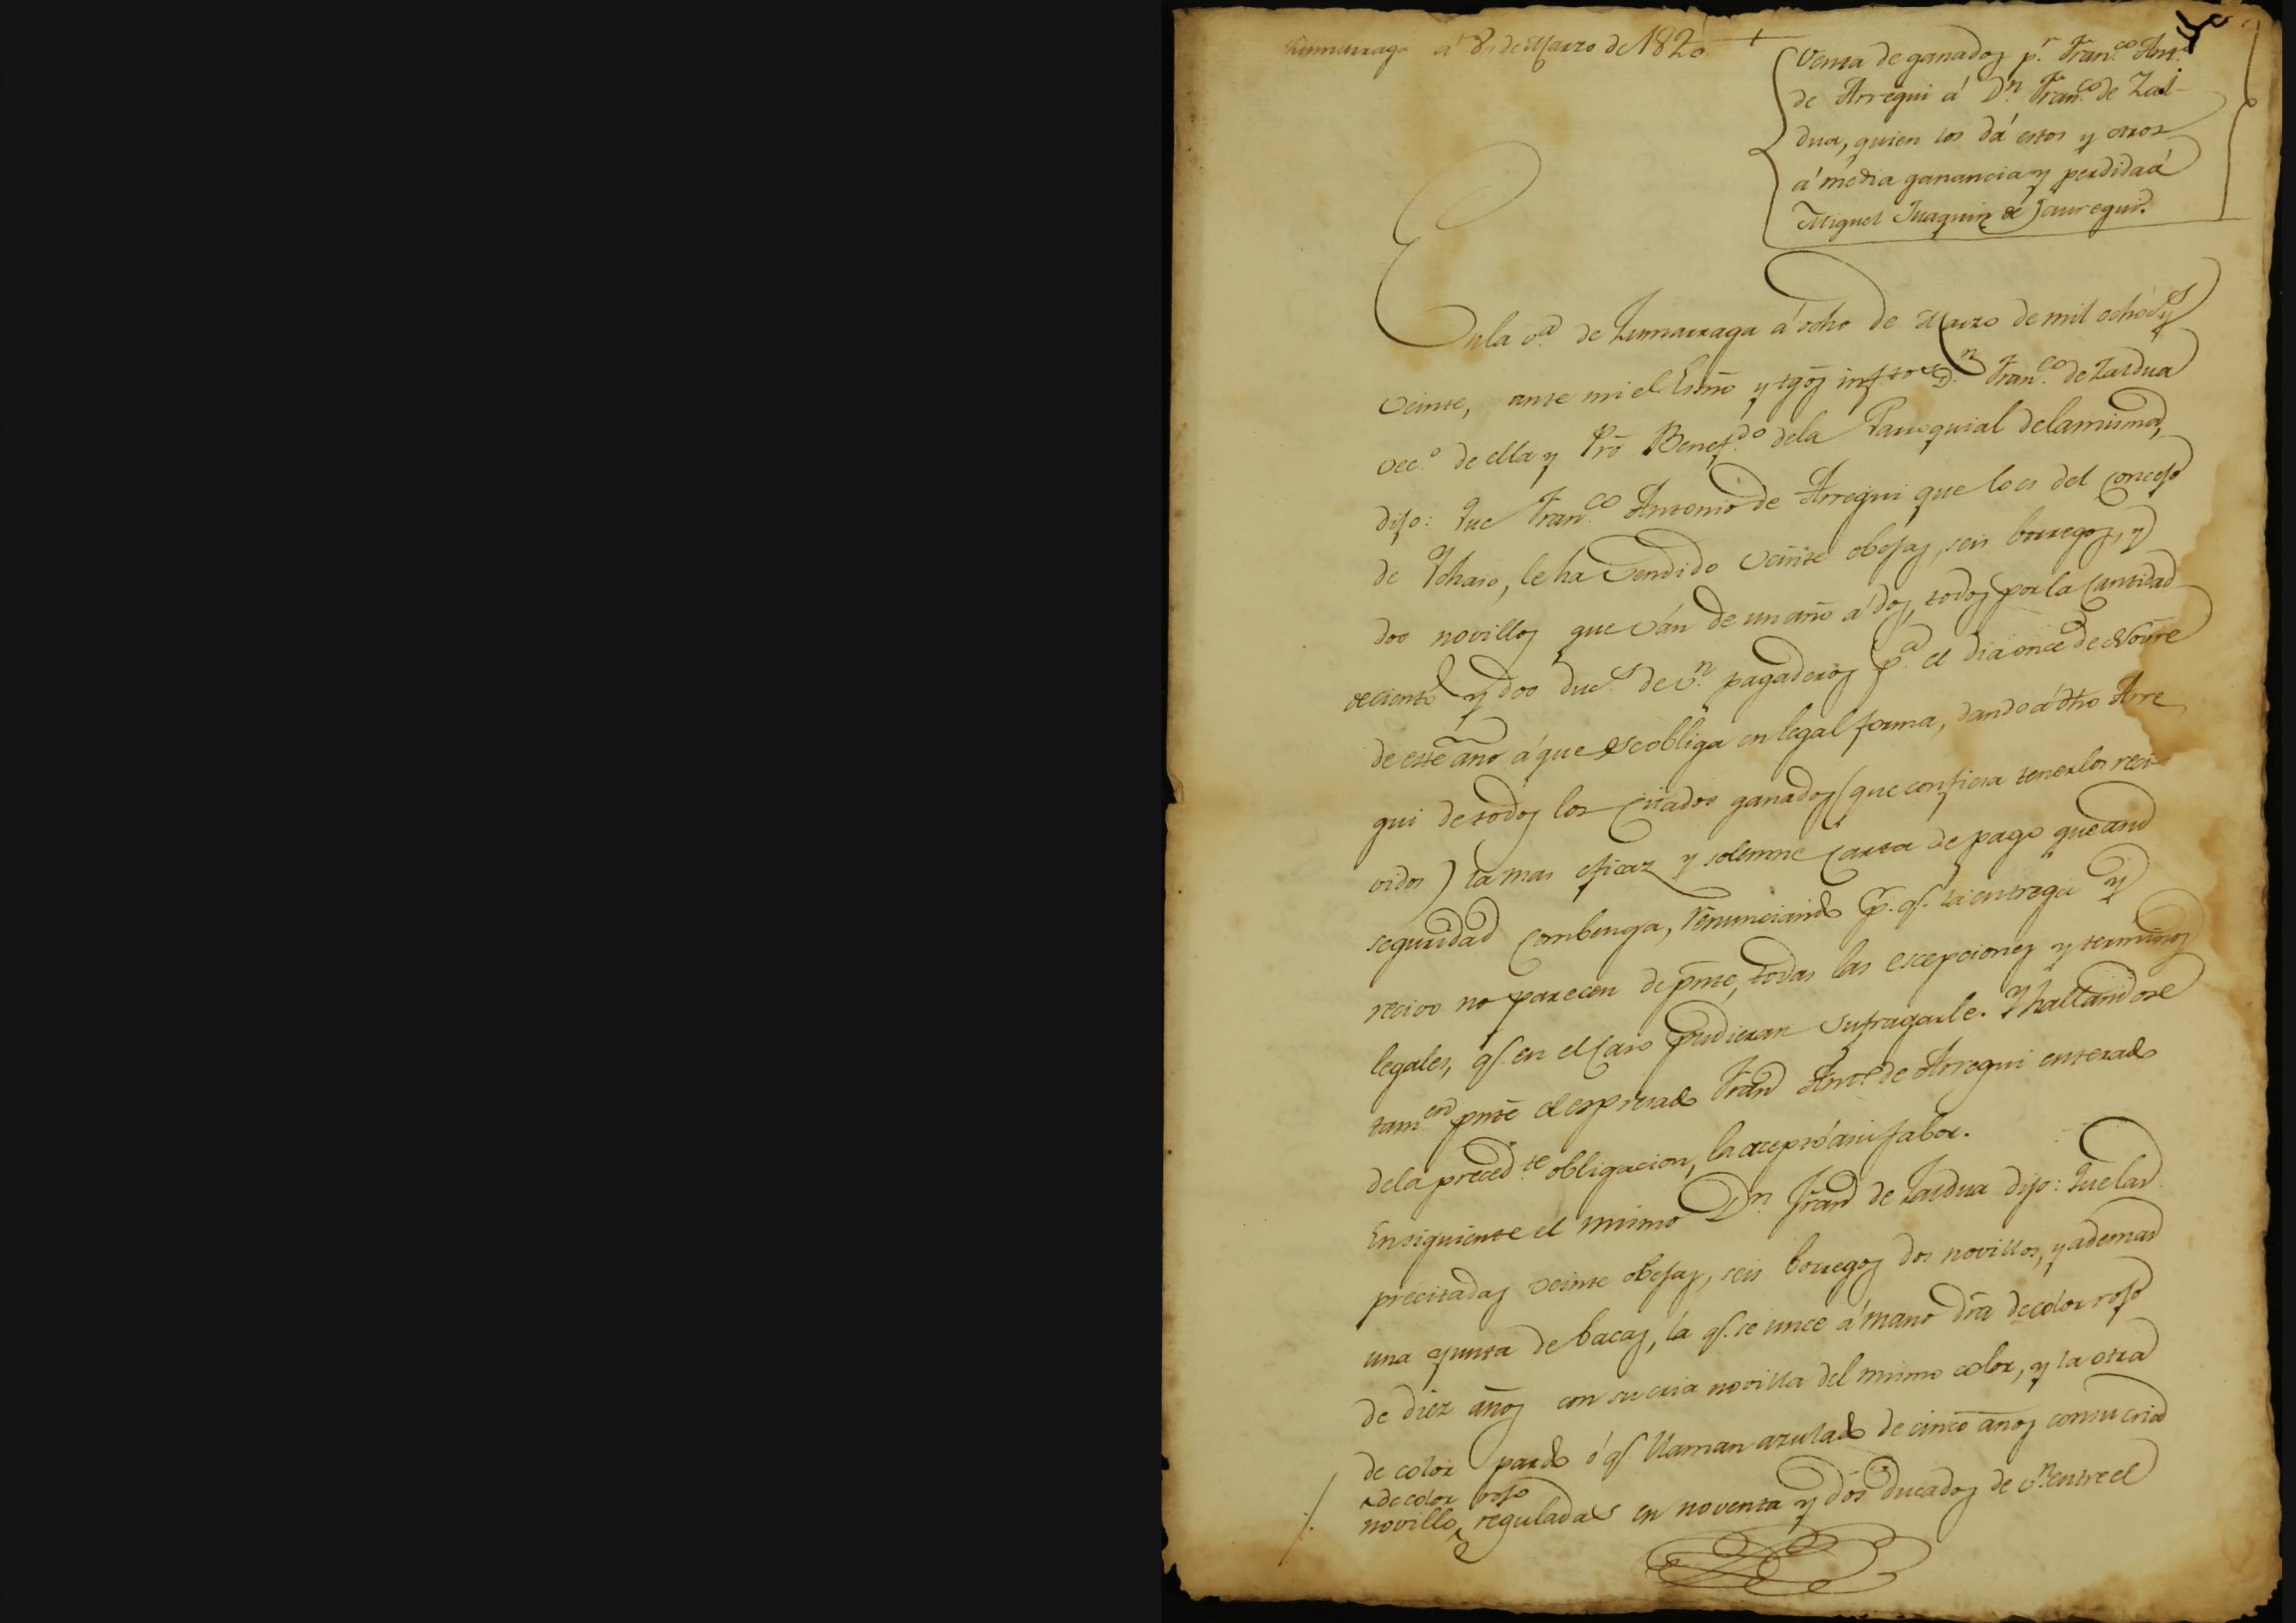 Zumarraga a 8 de Marzo de 1820
Venta de ganados p.r Fran.co Ant.o
de Arregui á D.n Fran.co de Zal-
dua, quien los dá estos y otros
á media ganancia y perdida á
Miguel Juaquin de Jauregui.
En la v.a de Zumarraga á ocho de Marzo de mil ochoc.s y
veinte, ante mi el Esño y tgos infros D.n Fran.co de Zaldua
vec.o de ella y Pro Benef.do dela Parroquial delamisma,
dijo: Que Fran.co Antonio de Arregui que lo es del concejo
de Ychaso, le ha vendido veinte obejas, seis borregos, y
dos novillos que ván de un año á dos, todos por la Cantidad
de ciento y dos duc.s de v.n pagaderos p.a el dia once de Novre
de este año á que se obliga en legal forma, dando á dho Arre
gui de todos los Citados ganados (que confiesa tenerlos reci
vidos) la mas eficaz y solemne Carta de pago que a su
seguridad combenga, renunciando p.r q.e la entrega y
recivo no parecen de pnte, todas las escepciones y terminos
legales, q.e en el Caso pudieran sufragarle. Y hallandose
tam.en pnte el espresado Fran.co Ant.o de Arregui enterado
dela preced.te obligacion, la aceptó á su fabor.
En siguiente el mismo D.n Fran.co de Zaldua dijo: Que las
precitadas veinte obejas, seis borregos dos novillos, y ademas
una yunta de bacas, la q.e se unce á mano dra de color rojo
de diez años con su cria novilla del mismo color, y la otra
de color pardo ó q.e llaman azulado de cinco años con su cria
de color rojo
novillo, reguladas en noventa y dos ducados de v.n entre el